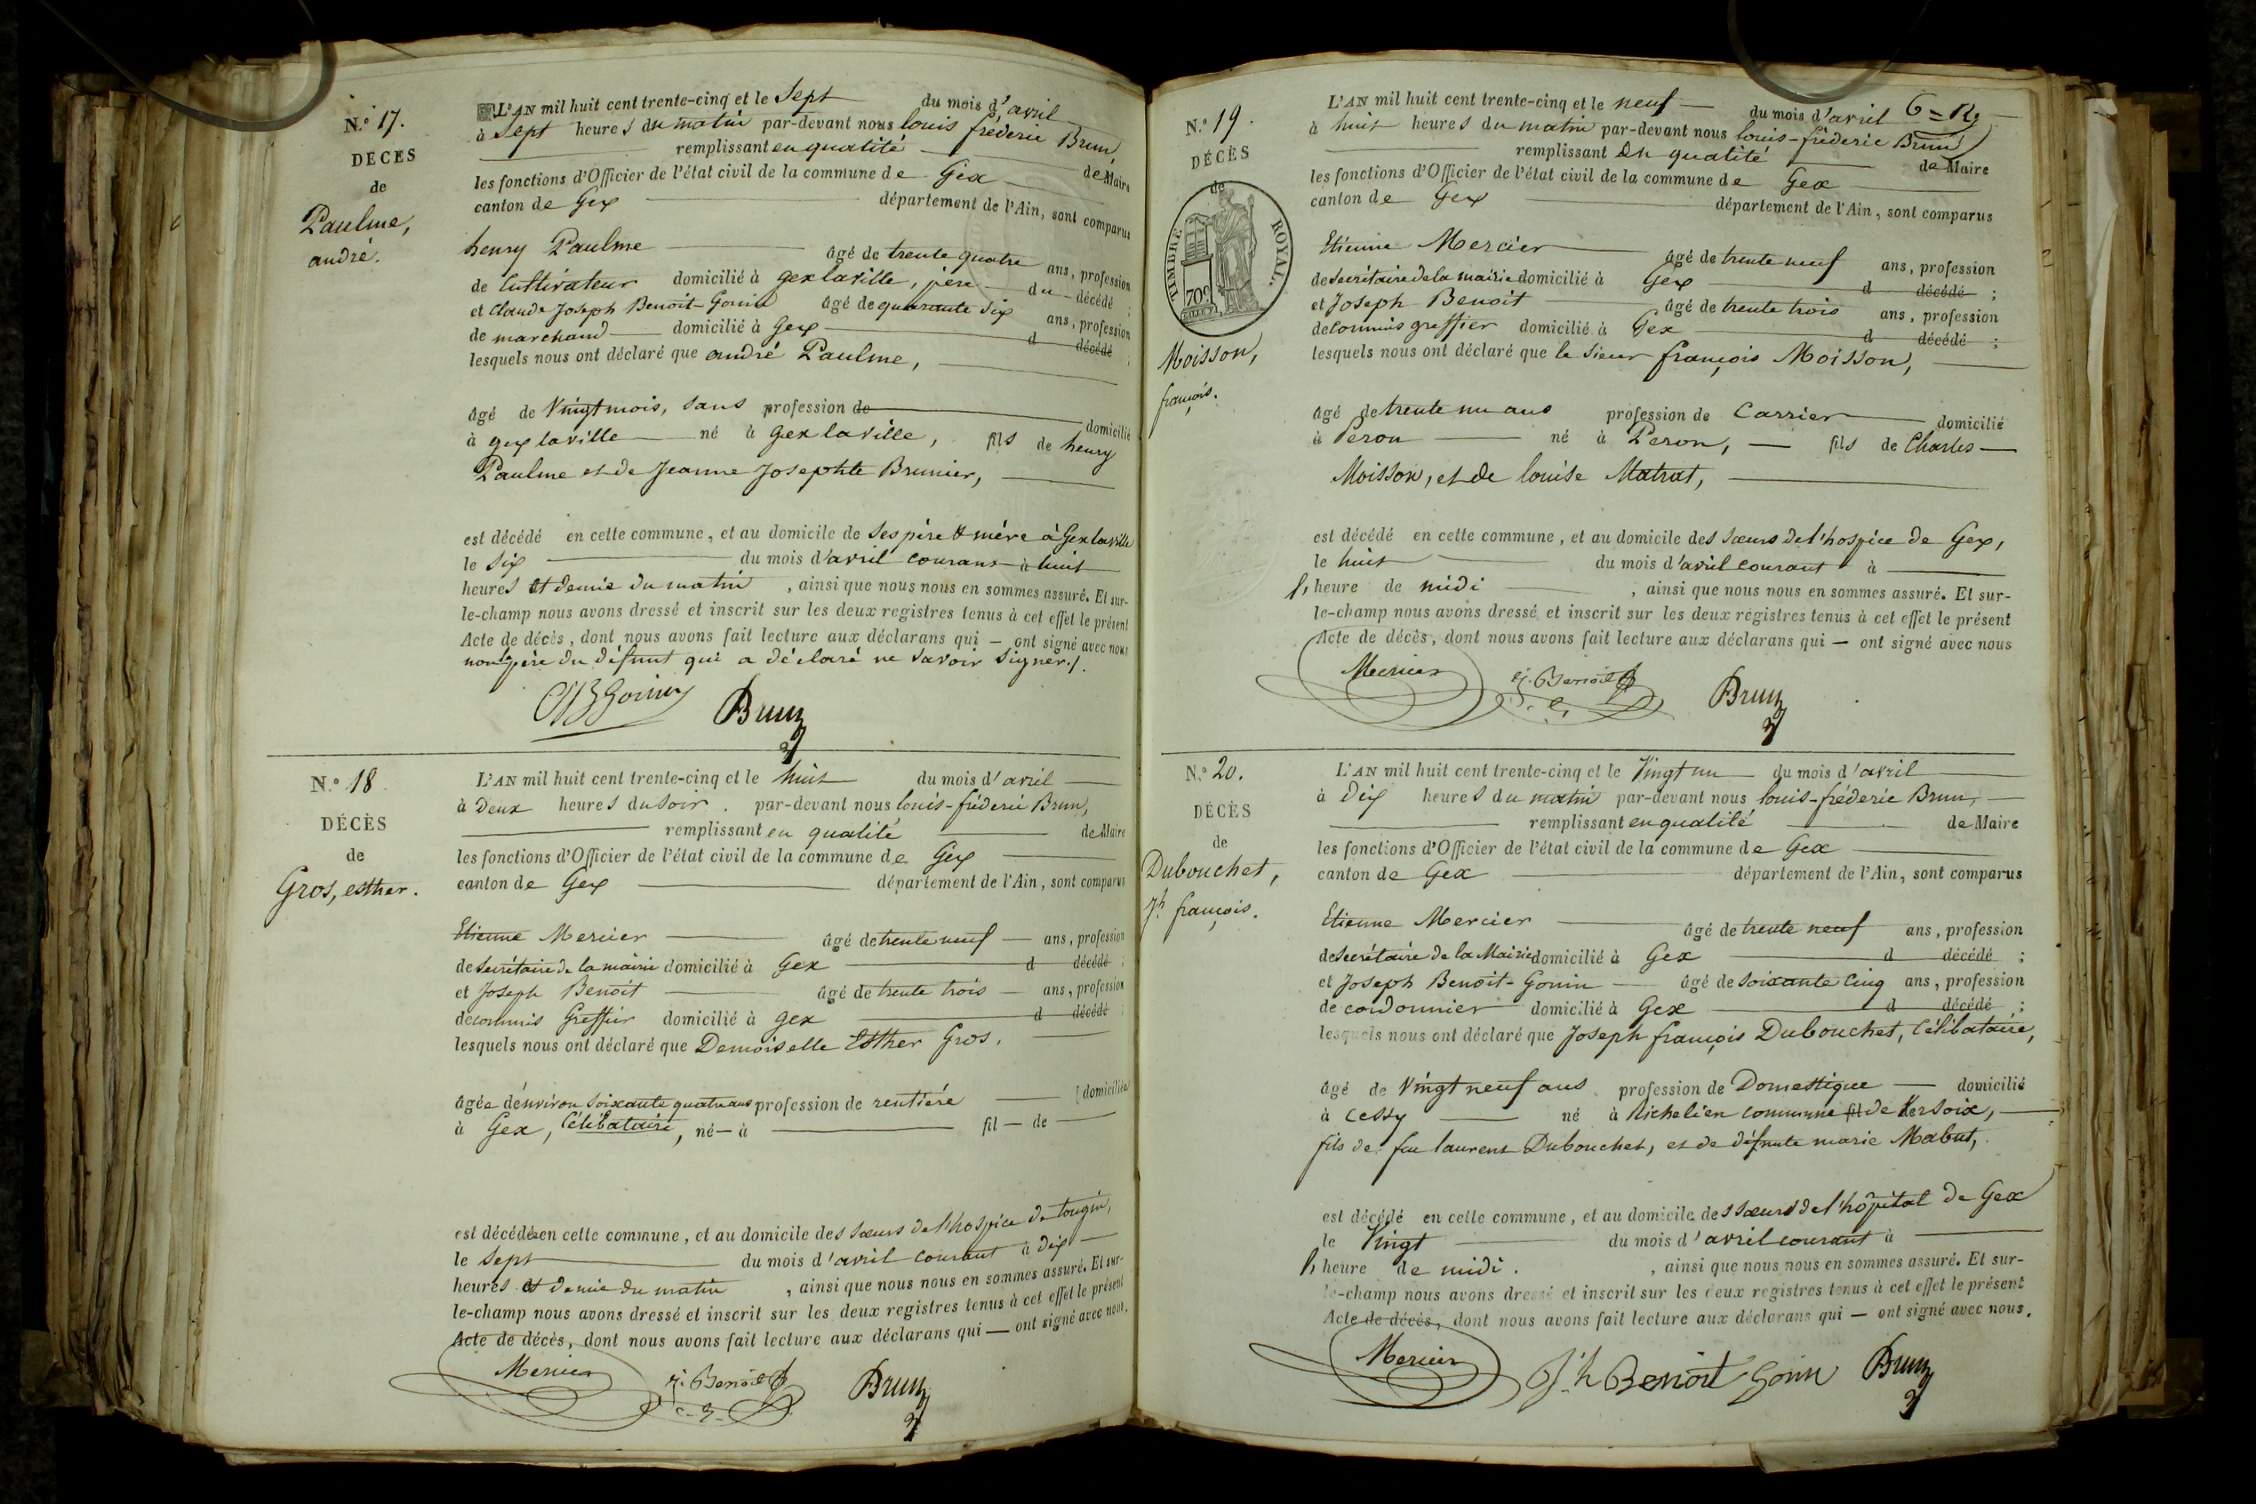 N.º 17.
DÉCÈS
de
Paulme,
andré.
L'AN mil huit cent trente-cinq et le Sept du mois d'avril
à Sept heures du matin par-devant nous louis frédéric Brun,
remplissant en qualité de Maire
les fonctions d'Officier de l'état civil de la commune de Gex
canton de Gex département de l'Ain, sont comparus
henry Paulme âgé de trente quatre ans, profession
de Cultivateur domicilié à gex laville, père du décédé ;
et Claude Joseph Benoit Gonin âgé de quarante Six ans, profession
de marchand domicilié à Gex d décédé ;
lesquels nous ont déclaré que andré Paulme,
âgé de Vingt mois, sans profession de domicilié
à gex laville né à Gex laville, fils de henry
Paulme et de Jeanne Josephte Brunier,
est décédé en cette commune, et au domicile de ses père & mère à Gex laville
le Six du mois d'avril courant à huit
heures et demie du matin, ainsi que nous nous en sommes assuré. Et sur-
le-champ nous avons dressé et inscrit sur les deux registres tenus à cet effet le présent
Acte de décès, dont nous avons fait lecture aux déclarans qui — ont signé avec nous
non le père du défunt qui a déclaré ne savoir signer ./.
CJB Gonin Brun
N.º 18
DÉCÈS
de
Gros, esther.
L'AN mil huit cent trente-cinq et le huit du mois d'avril
à Deux heures du soir. par-devant nous louis-fréderic Brun,
remplissant en qualité de Maire
les fonctions d'Officier de l'état civil de la commune de Gex
canton de Gex département de l'Ain, sont comparus
Etienne Mercier âgé de trente neuf — ans, profession
de Secrétaire de la mairie domicilié à Gex d décédé ;
et Joseph Benoit âgé de trente trois — ans, profession
de commis Greffier domicilié à gex d décédé ;
lesquels nous ont déclaré que Demoiselle Esther Gros,
âgée d'environ soixante quatre ans profession de rentière domiciliée
à Gex, Célibataire, né — à fil — de —
est décédée en cette commune, et au domicile des sœurs de l'hospice de tougin,
le Sept du mois d'avril courant à dix
heures et demie du matin, ainsi que nous nous en sommes assuré. Et sur-
le-champ nous avons dressé et inscrit sur les deux registres tenus à cet effet le présent
Acte de décès, dont nous avons fait lecture aux déclarans qui — ont signé avec nous.
Mercier j. Benoit Brun
c. g.
6 = R.
N.º 19.
DÉCÈS
de
TIMBRE ROYAL.
70c
Moisson,
françois.
L'AN mil huit cent trente-cinq et le neuf — du mois d'avril
à huit heures du matin par-devant nous louis-fréderic Brun
remplissant En qualité de Maire
les fonctions d'Officier de l'état civil de la commune de Gex
canton de Gex département de l'Ain, sont comparus
Etienne Mercier âgé de trente neuf ans, profession
de Secrétaire de la mairie domicilié à Gex d décédé ;
et Joseph Benoit âgé de trente trois ans, profession
de commis greffier domicilié à Gex d décédé ;
lesquels nous ont déclaré que le sieur françois Moisson,
âgé de trente un ans profession de Carrier domicilié
à Peron né à Peron, — fils de Charles —
Moisson, et de louise Matrat,
est décédé en cette commune, et au domicile des sœurs de l'hospice de Gex,
le huit du mois d'avril courant à
l'heure de midi, ainsi que nous nous en sommes assuré. Et sur-
le-champ nous avons dressé et inscrit sur les deux registres tenus à cet effet le présent
Acte de décès, dont nous avons fait lecture aux déclarans qui — ont signé avec nous
Mercier j. Benoit Brun
N.º 20.
DÉCÈS
de
Dubouchet,
Jh françois.
L'AN mil huit cent trente-cinq et le Vingt un du mois d'avril
à Dix heures du matin par-devant nous louis-fréderic Brun,
remplissant en qualité de Maire
les fonctions d'Officier de l'état civil de la commune de Gex
canton de Gex département de l'Ain, sont comparus
Etienne Mercier âgé de trente neuf ans, profession
de Secrétaire de la Mairie domicilié à Gex d décédé ;
et Joseph Benoit-Gonin âgé de soixante Cinq ans, profession
de cordonnier domicilié à Gex d décédé ;
lesquels nous ont déclaré que Joseph françois Dubouchet, Célibataire,
âgé de Vingt neuf ans profession de Domestique — domicilié
à Cessy né à Richelien commune fil de Versoix,
fils de feu laurent Dubouchet, et de défunte marie Mabut,
est décédé en cette commune, et au domicile des sœurs de l'hôpital de Gex
le Vingt du mois d'avril courant à
l'heure de midi., ainsi que nous nous en sommes assuré. Et sur-
le-champ nous avons dressé et inscrit sur les deux registres tenus à cet effet le présent
Acte de décès, dont nous avons fait lecture aux déclarans qui — ont signé avec nous.
Mercier Jh Benoit Gonin Brun